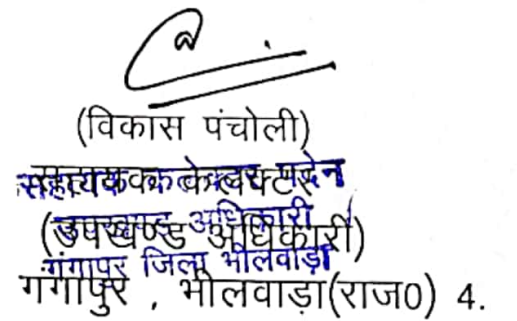 (विकास पंचोली)
सहायक कलेक्टर
(उपखण्ड अधिकारी)
उपखण्ड अधिकारी
गंगापुर जिला भीलवाड़ा
गंगापुर , भीलवाड़ा(राज0) 4.